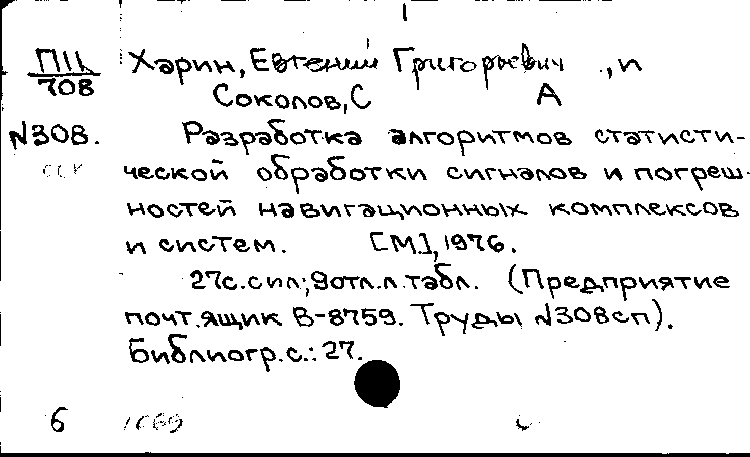 ПIk Харин, Евгений Григорьевич, и
708 Соколов, С А
N308. Разработка алгоритмов статисти-
ческой обработки сигналов и погреш-
ностей навигационных комплексов
и систем. [М.], 1976.
27с. с ил; 9отл.л.табл. (Предприятие
почт.ящик В-8759. Труды N308сп).
Библиогр. с.: 27.
6